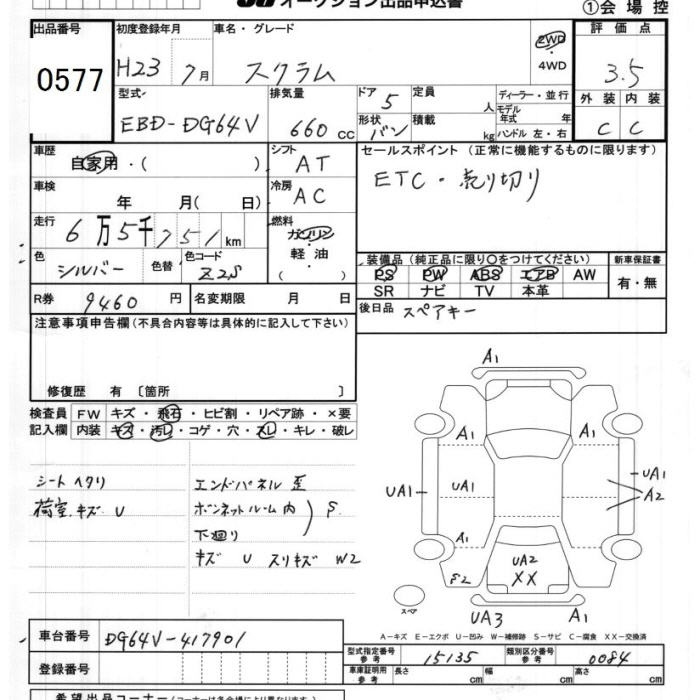 オークション出品申込書
①会場控
出品番号
0577
初度登録年月
H23 7月
車名・グレード
スクラム
2WD
・
4WD
評価点
3.5
外装 内装
C C
型式
EBD-DG64V
排気量
660 cc
ドア 5
形状 バン
定員 人
積載 kg
ディーラー・並行
モデル年式 年
ハンドル 左・右
車歴
自家用・( )
シフト
AT
車検
年 月( 日)
冷房
AC
走行
6万5千751km
燃料
ガソリン
軽油
( )
色
シルバー
色替
色コード
Z2S
R券 9460 円
名変期限 月 日
セールスポイント(正常に機能するものに限ります)
ETC・売り切り
装備品(純正品に限り○をつけてください)
PS PW ABS エアB AW
SR ナビ TV 本革
新車保証書
有・無
後日品 スペアキー
注意事項申告欄(不具合内容等は具体的に記入して下さい)
修復歴 有〔箇所 〕
検査員
記入欄
FW キズ・飛石・ヒビ割・リペア跡・×要
内装 キズ・汚レ・コゲ・穴・スレ・キレ・破レ
シートヘタリ
荷室キズ U
エンドパネル歪
ボンネットルーム内
下廻り
S
キズ U スリキズ W2
A1
A1 A1
UA1 UA1 UA1
A2
A1 A1
S2
UA2
XX
スペア
UA3 A1
A-キズ E-エクボ U-凹み W-補修跡 S-サビ C-腐食 XX-交換済
車台番号 DG64V-417901
登録番号
型式指定番号
参考
15135
類別区分番号
参考
0084
車庫証明用
参考
長さ 幅 高さ
希望出品コーナー(コーナーは各会場により異なります)